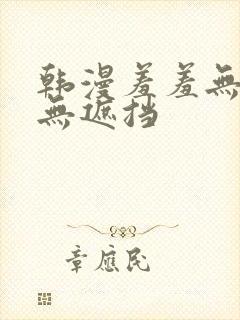 韩漫羞羞無
無遮挡
章應民